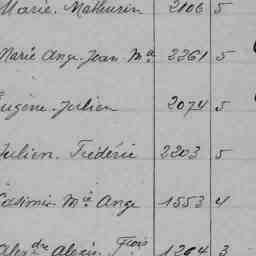 Marie. Mathurin 2106 5
Marie Ange. Jean Mie 2361 5
Eugène. Julien 2074 5
Julien. Frédéric 2203 5
Casimir Mie Ange 1553 4
Alexdre Alexis Fçois 1264 3